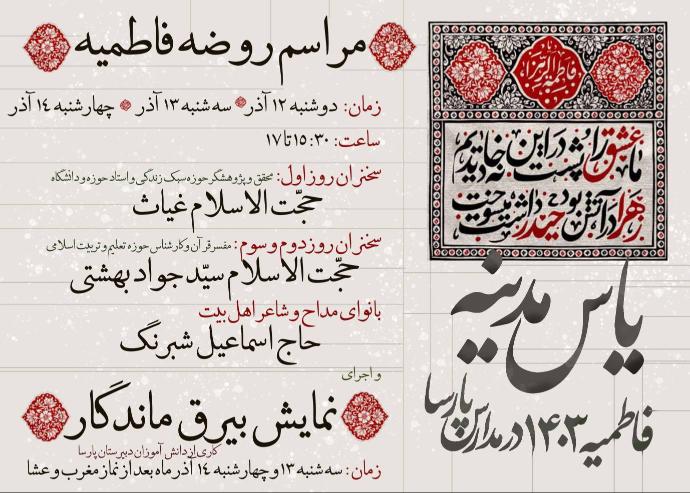 مراسم روضه فاطمیه
زمان: دوشنبه ۱۲ آذر سه شنبه ۱۳ آذر چهارشنبه ۱۴ آذر
ساعت: ۱۵:۳۰ تا ۱۷
سخنران روز اول: محقق و پژوهشگر حوزه سبک زندگی و استاد حوزه و دانشگاه
حجّت الاسلام غیاث
سخنران روز دوم و سوم: مفسر قرآن و کارشناس حوزه تعلیم و تربیت اسلامی
حجّت الاسلام سیّد جواد بهشتی
بانوای مداح و شاعر اهل بیت
حاج اسماعیل شبرنگ
و اجرای
نمایش بیرق ماندگار
کاری از دانش آموزان دبیرستان پارسا
زمان: سه شنبه ۱۳ و چهارشنبه ۱۴ آذر ماه بعد از نماز مغرب و عشا
فاطمة الزهرا
ما عشق را پشت در این خانه دیدیم
زهرا در آتش بود حیدر داشت میسوخت
یاس مدینه
فاطمیه ۱۴۰۳ در مدارس پارسا